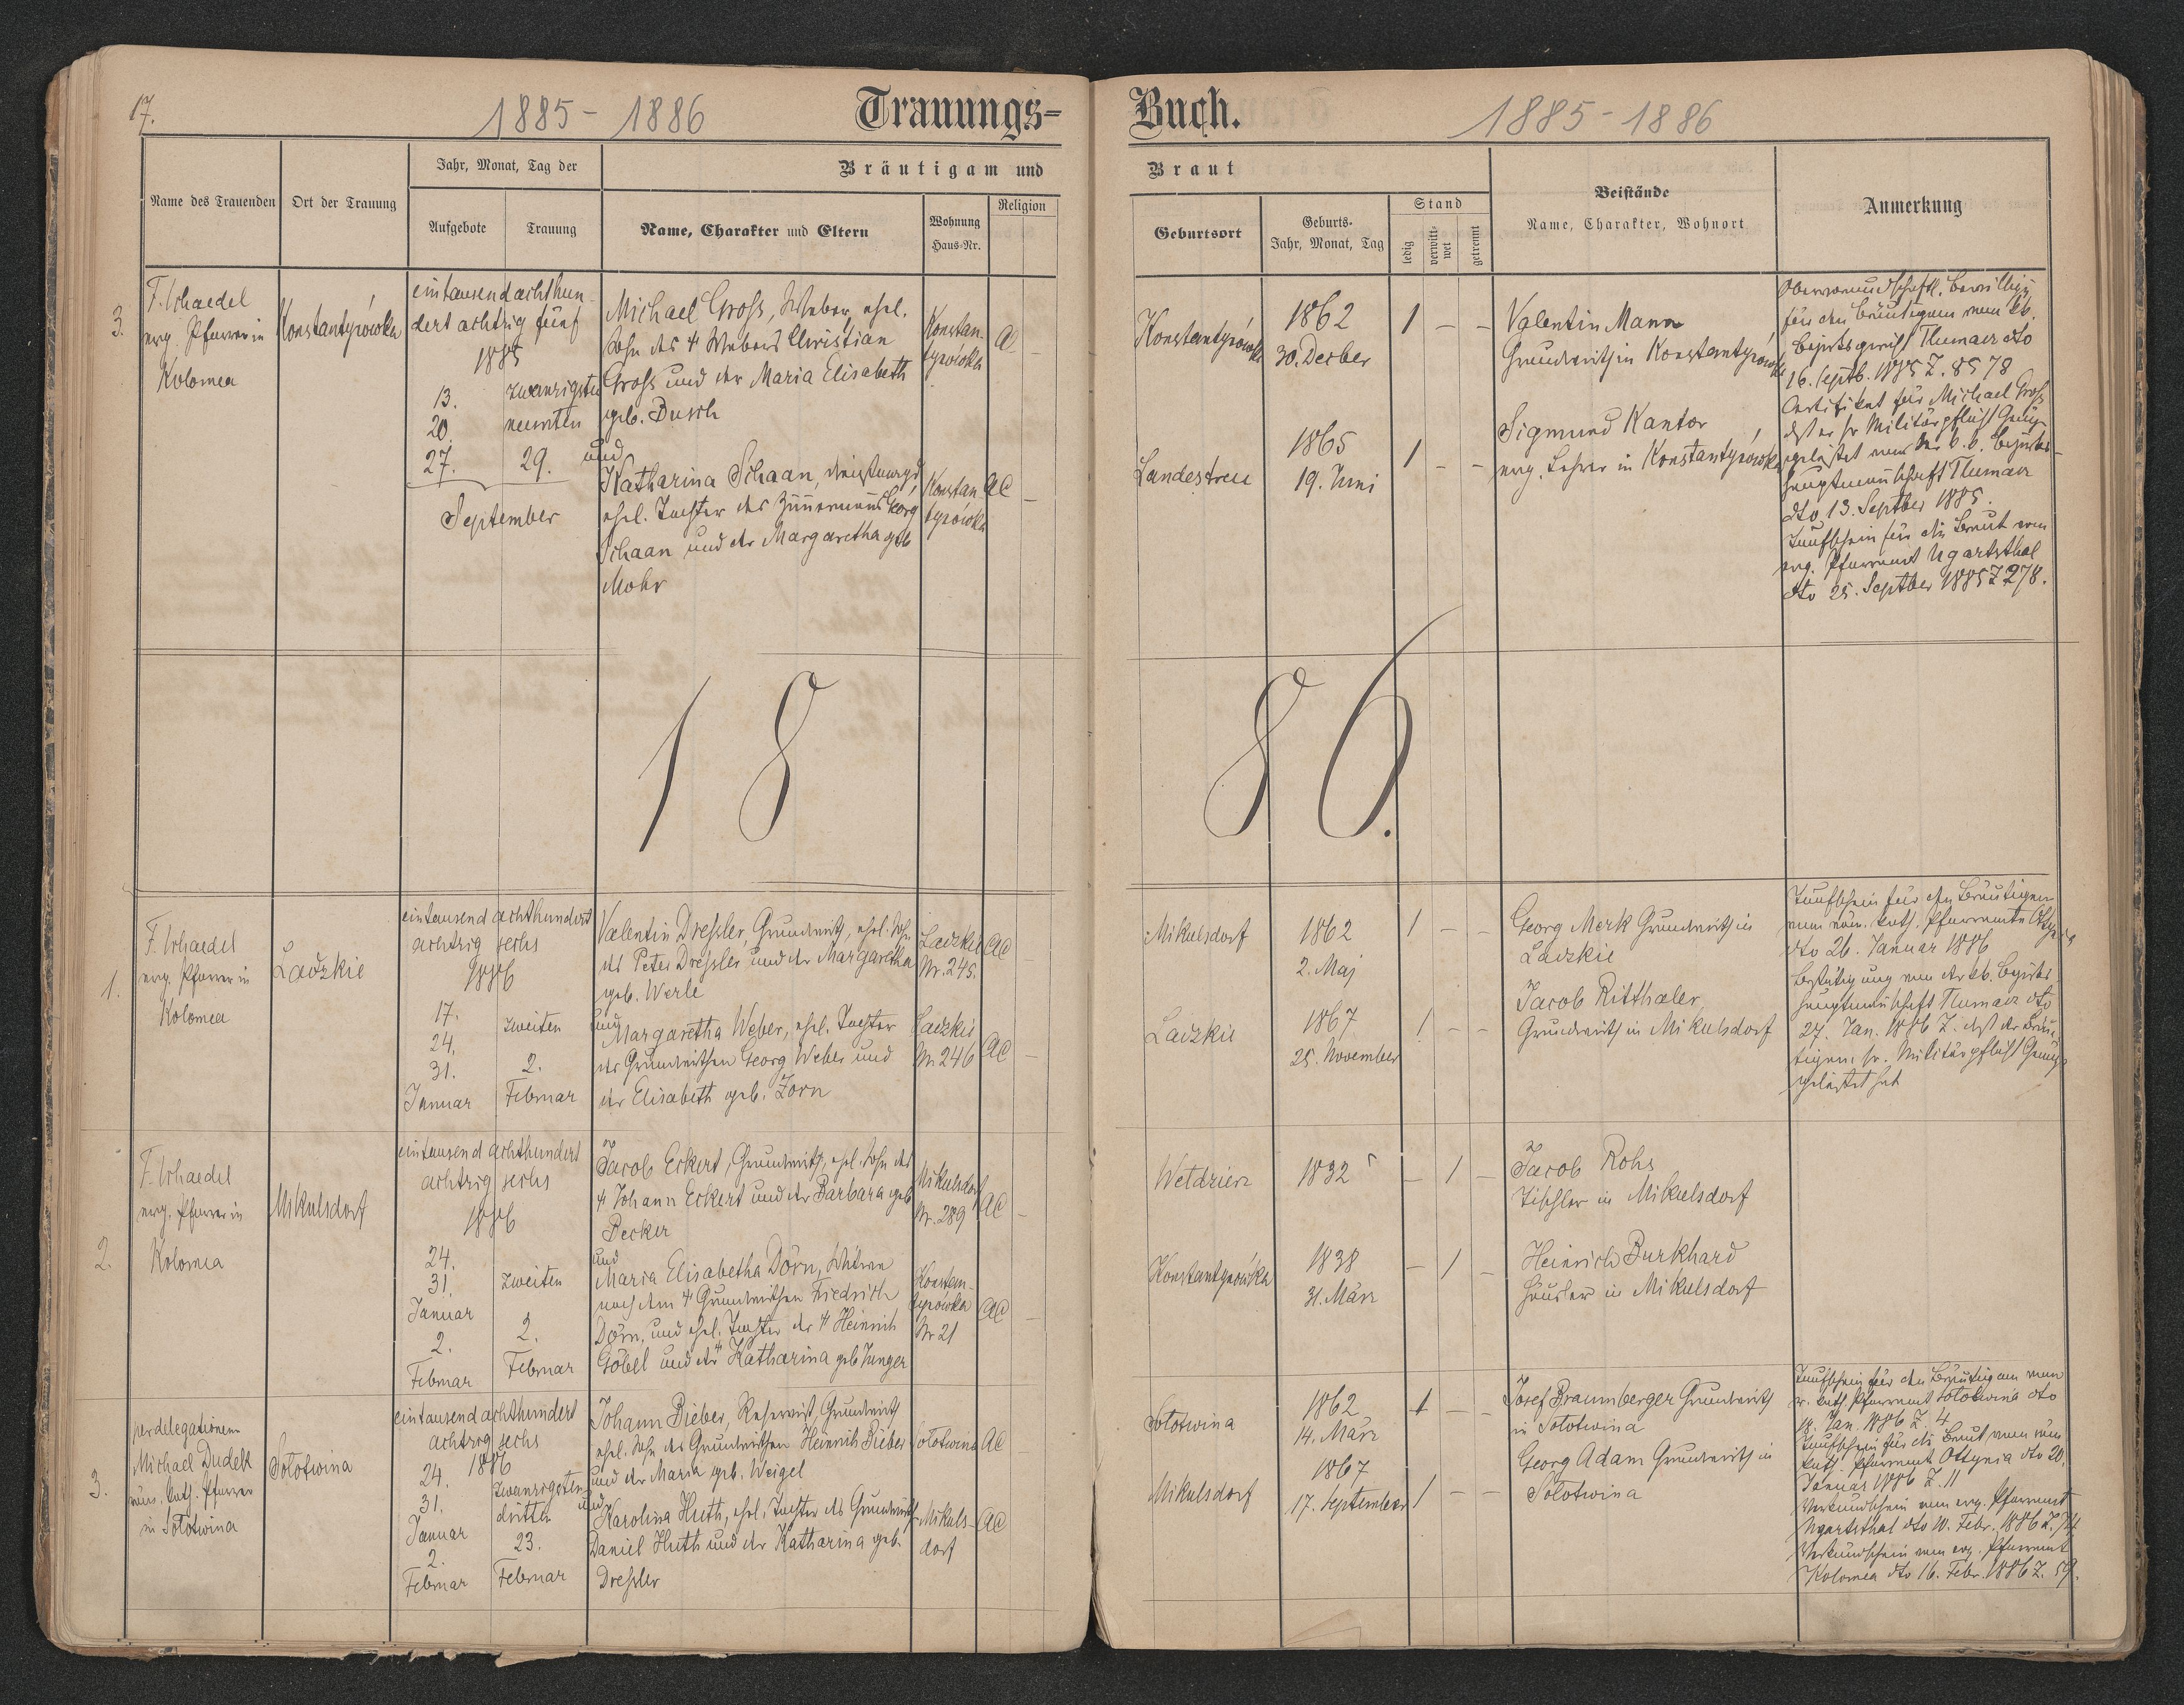 17.
1885 - 1886
Trauungs-
Buch.
1885 - 1886
Name des Trauenden
Ort der Trauung
Jahr, Monat, Tag der
Aufgebote
Trauung
Bräutigam und
Name, Charakter und Eltern
Wohnung
Haus-Nr.
Religion
Braut
Geburtsort
Geburts-
Jahr, Monat, Tag
Stand
ledig
verwitt-
wet
getrennt
Beistände
Name, Charakter, Wohnort
Anmerkung
3.
F. Schaedel
evg. Pfarrer in
Kolomea
Konstantyrówka
eintausend achthun-
dert achtzig fünf
1885
13.
20.
27.
zwanzigsten
neunten
29.
September
Michael Gross, Weber, ehel.
Sohn des † Webers Christian
Gross und der Maria Elisabeth
geb. Busch
und
Katharina Schaan,
ehel. Tochter des Zimermans Georg
Schaan und der Margaretha geb
Mohr
Konstan-
tyrówka
AC
–
Konstan-
tyrówka
AC
–
Konstantyrówka
1862
30. Dezber
1 – –
Landestreu
1865
19. Juni
1 – –
Valentin Mann
Grundwirth in Konstantyrówka
Sigmund Kantor
evg. Lehrer in Konstantyrówka
Obervormundschaftl. Bewillig
für den Bräutigam vom kk.
Bezirksgericht Tlumacz dto
16. Septb. 1885 Z. 8578
Certifikat für Michael Gross
dass er sr Militärpflicht Genüge
geleistet von der k. k. Bezirks-
hauptmannschaft Tlumacz
dto 13. Septber 1885.
Taufschein für die Braut vom
evg. Pfarramt Ugartsthal
dto 25. Septber 1885 Z 278.
18
86.
1.
F. Schaedel
evg. Pfarrer in
Kolomea
Ladzkie
eintausend achthundert
achtzig sechs
1886
17.
24.
31.
Januar
zweiten
2.
Februar
Valentin Dressler, Grundwirth, ehel. Sohn
des Peter Dressler und der Margaretha
geb. Werle
und
Margaretha Weber, ehel. Tochter
des Grundwirthen Georg Weber und
der Elisabeth geb. Zorn
Ladzkie
Nr. 245.
AC
–
Ladzkie
Nr. 246
AC
–
Mikulsdorf
1862
2. Maj
1 – –
Ladzkie
1867
25. November
1 – –
Georg Merk Grundwirth in
Ladzkie
Jacob Ritthaler
Grundwirth in Mikulsdorf
Taufschein für den Bräutigam
vom röm. kath. Pfarramte Ottynia
dto 26. Januar 1886
Bestätigung von der kk. Bezirks-
hauptmannschaft Tlumacz dto
27. Jan. 1886 Z. dass der Bräu-
tigam sr. Militärpflicht Genüge
geleistet hat
2.
F. Schaedel
evg. Pfarrer in
Kolomea
Mikulsdorf
eintausend achthundert
achtzig sechs
1886
24.
31.
Januar
2.
Februar
zweiten
2.
Februar
Jacob Eckert, Grundwirth, ehel. Sohn des
† Johann Eckert und der Barbara geb
Becker
und
Maria Elisabetha Dörn, Witwe
nach dem † Grundwirthen Friedrich
Dörn, und ehel. Tochter des † Heinrich
Göbel und der † Katharina geb Junger
Mikulsdorf
Nr. 289
AC
–
Konstan-
tyrówka
Nr 21
AC
–
Weldzierz
1832
– 1 –
Konstantyrówka
1838
31. März
– 1 –
Jacob Rohs
Tischler in Mikulsdorf
Heinrich Burkhard
Häusler in Mikulsdorf
3.
per delegationem
Michael Dudek
röm. kath. Pfarrer
in Solotwina
Solotwina
eintausend achthundert
achtzig sechs
1886
24.
31.
Januar
2.
Februar
zwanzigsten
dritten
23.
Februar
Johann Bieber, Reservist, Grundwirth
ehel. Sohn des Grundwirthen Heinrich Bieber
und der Maria geb. Weigel
und
Karolina Huth, ehel. Tochter des Grundwirth
Daniel Huth und der Katharina geb.
Dressler
Solotwina
AC
–
Mikuls-
dorf
AC
–
Solotwina
1862
14. März
1 – –
Mikulsdorf
1867
17. September
1 – –
Josef Braumberger Grundwirth
in Solotwina
Georg Adam Grundwirth in
Solotwina
Taufschein für den Bräutigam vom
r. kath. Pfarramt Solotwina dto
18. Jan. 1886 Z. 4
Taufschein für die Braut vom röm
kath. Pfarramt Ottynia dto 20.
Januar 1886 Z. 11
Verkündschein vom evg. Pfarramt
Ugartsthal dto 10. Febr. 1886 Z. 74
Verkündschein vom evg. Pfarramt
Kolomea dto 16. Febr. 1886 Z. 59.